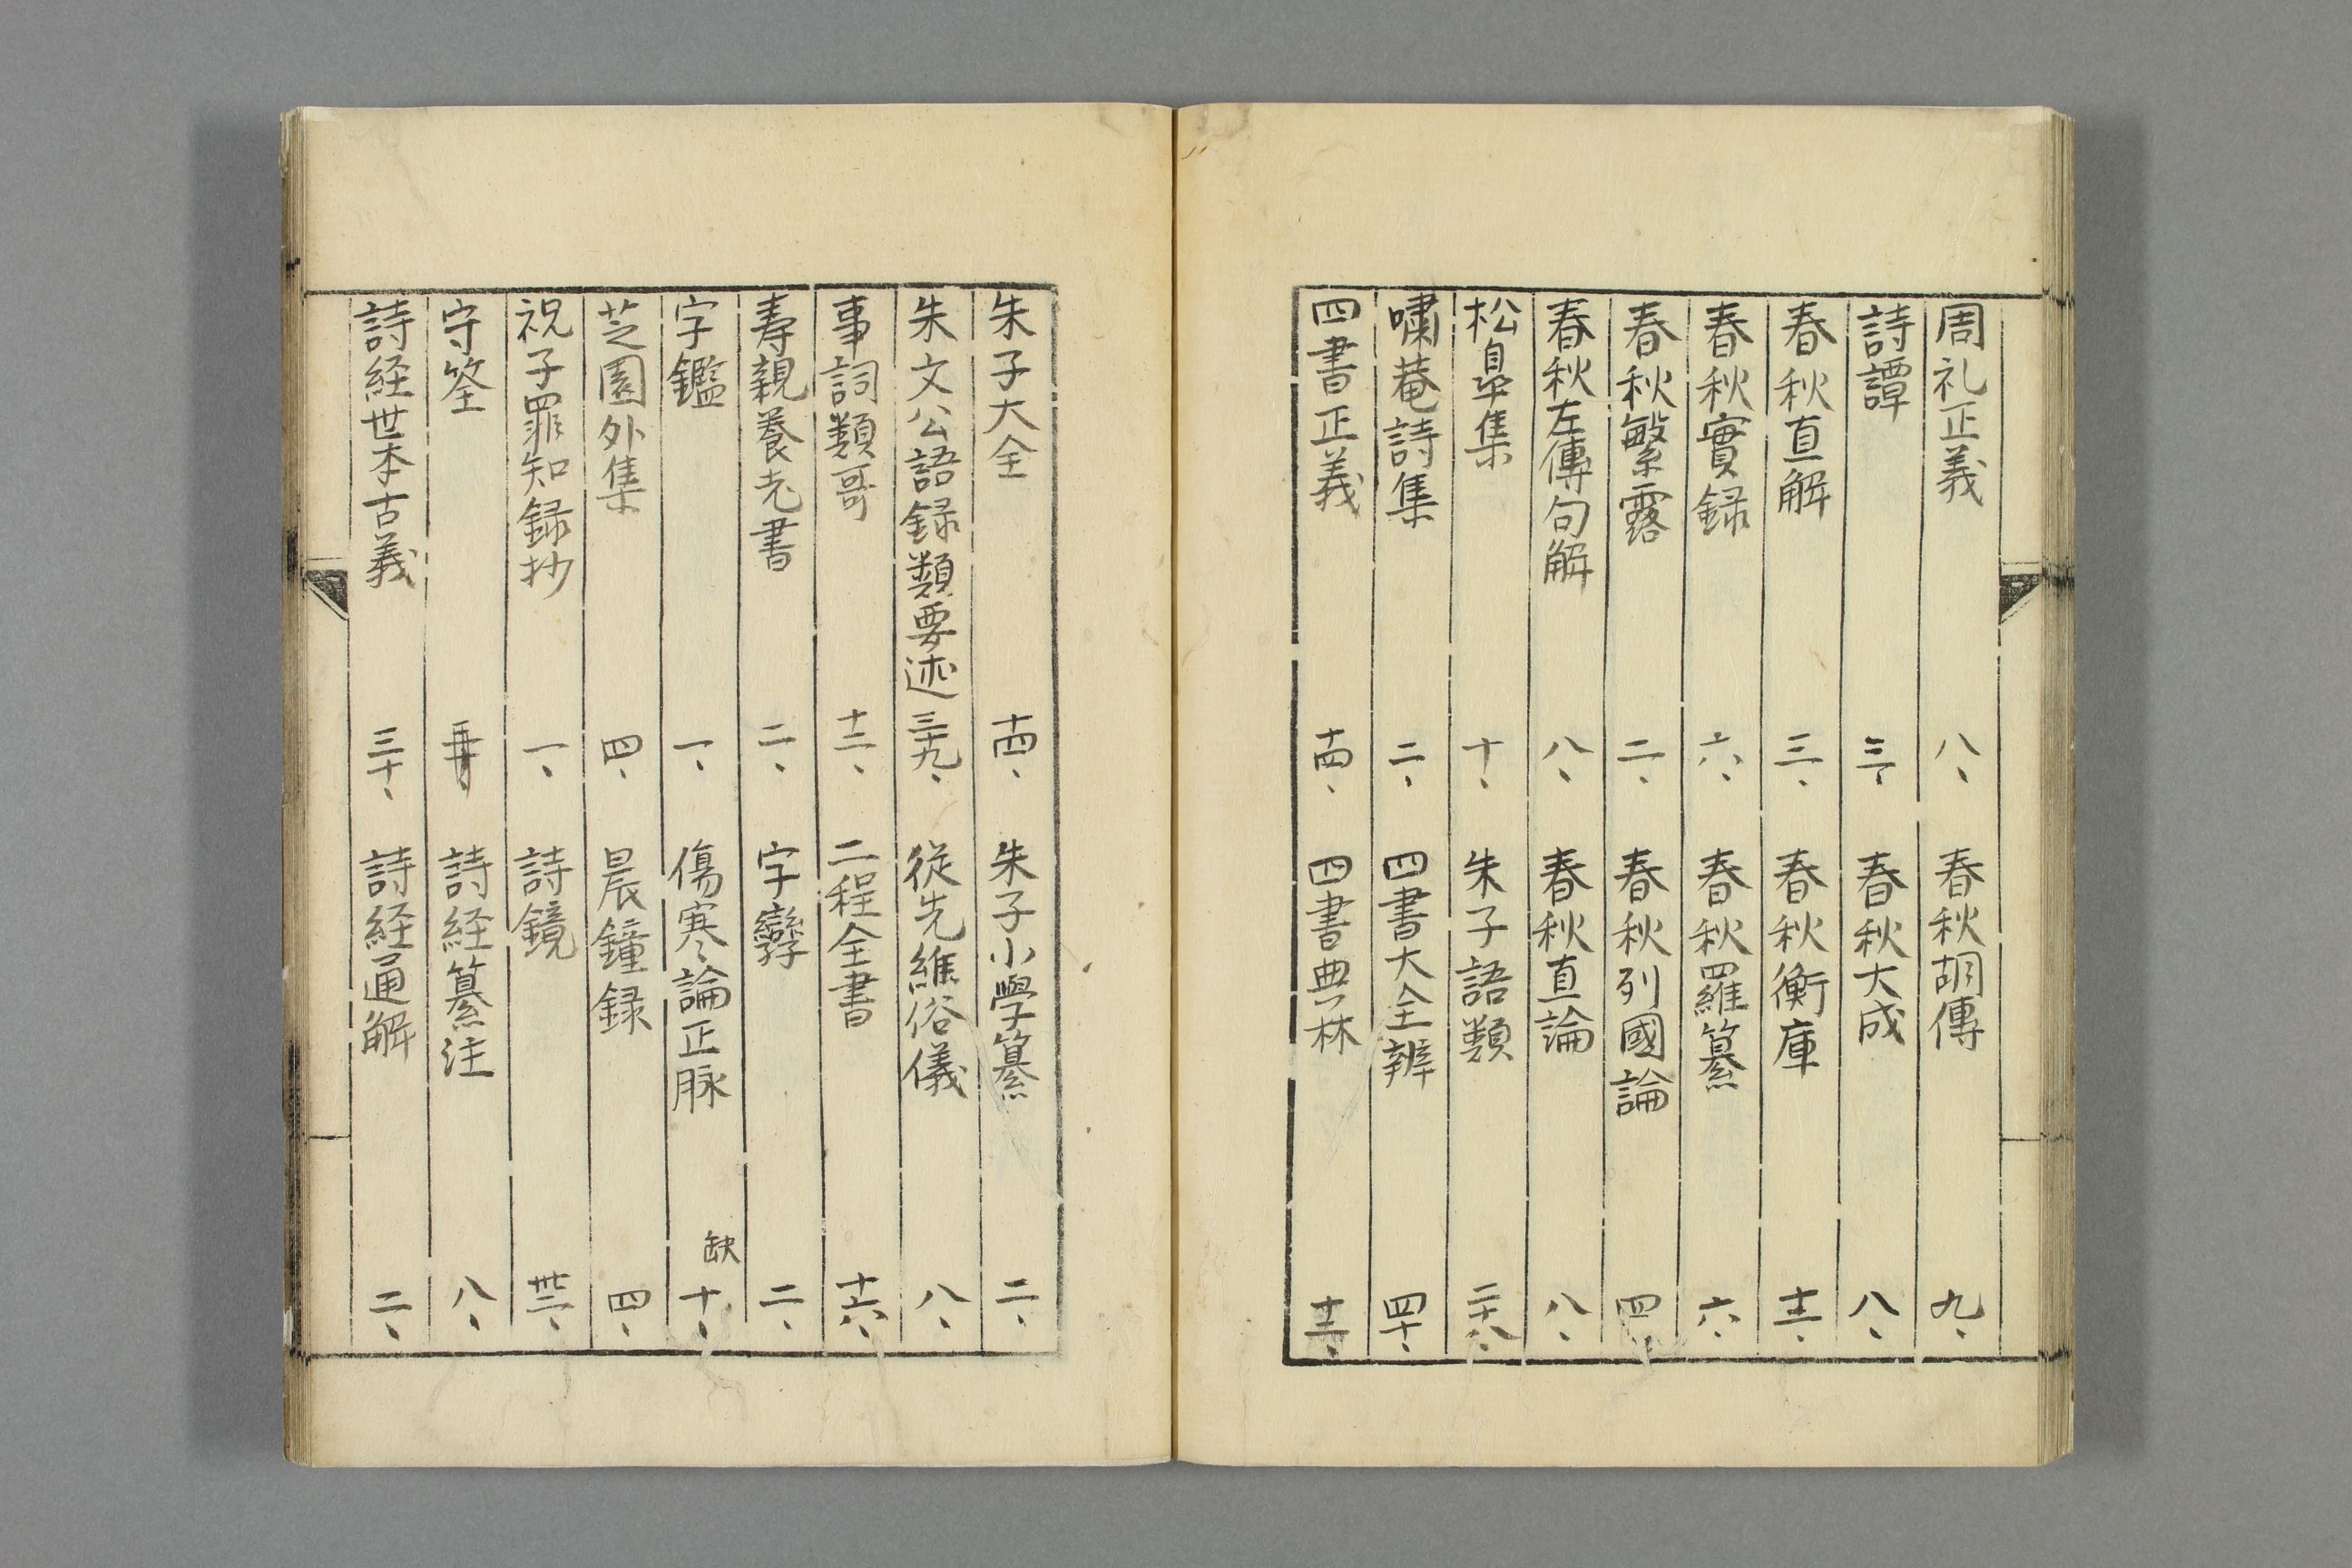 周礼正義 八、 春秋胡傳 九、
詩譚 三、 春秋大成 八、
春秋直解 三、 春秋衡庫 十二、
春秋實録 六、 春秋羅纂 六、
春秋繁露 二、 春秋列國論 四、
春秋左傳句解 八、 春秋直論 八、
松皐集 十、 朱子語類 二十八、
嘯菴詩集 二、 四書大全辨 四十、
四書正義 十四、 四書典林 十二、
朱子大全 十四、 朱子小學纂 二、
朱文公語録類要述 三十九、 從先維俗儀 八、
事詞類哥 十二、 二程全書 十六、
寿親養老書 二、 字孿 二、
字鑑 一、 傷寒論正脉 缺 十、
芝園外集 四、 晨鐘録 四、
祝子罪知録抄 一、 詩鏡
守筌 詩経纂注 八、
詩経世本古義 三十、 詩経通解 二、